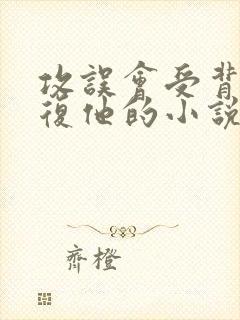 攻誤會受背
復他的小說
齊橙